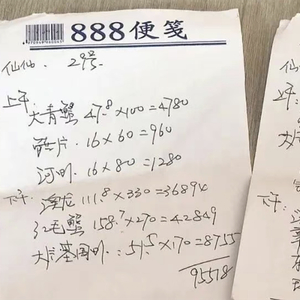 888便笺
仙仙. 29号.
上午: 大青蟹 47.8×100=4780
片. 16×60=960
河虾. 16×80=1280
下午: 澳龙 111.8×330=36894
红毛蟹 158.7×270=42849
大基围虾: 51.5×170=8755
95578
仙